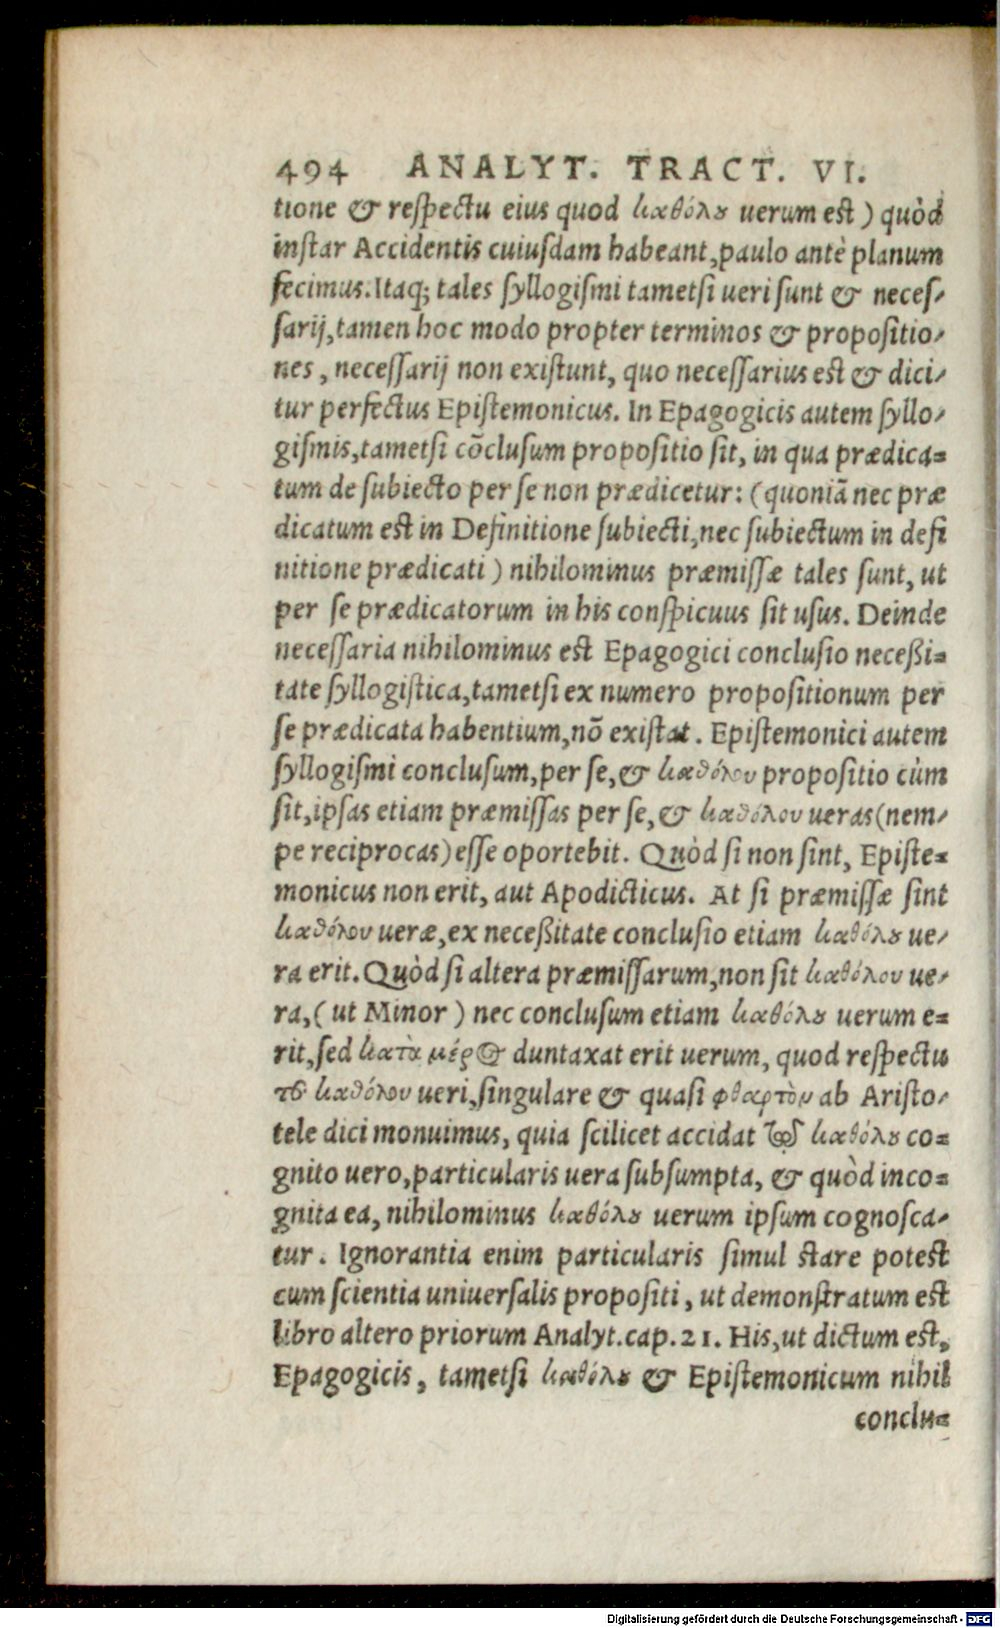 494 ANALYT. TRACT. VI.
tione & reſpectu eius quod καθόλȣ uerum est) quòd
inſtar Accidentis cuiuſdam habeant, paulo antè planum
fecimus. Itaq; tales ſyllogiſmi tametſi ueri ſunt & neceſ-
ſarij, tamen hoc modo propter terminos & propoſitio-
nes, neceſſarij non exiſtunt, quo neceſſarius est & dici-
tur perfectus Epiſtemonicus. In Epagogicis autem ſyllo-
giſmis, tametſi cōcluſum propoſitio ſit, in qua prædica=
tum de ſubiecto per ſe non prædicetur: (quoniā nec præ
dicatum est in Definitione ſubiecti, nec ſubiectum in defi
nitione prædicati) nihilominus præmiſſæ tales ſunt, ut
per ſe prædicatorum in his conſpicuus ſit uſus. Deinde
neceſſaria nihilominus est Epagogici concluſio neceßi=
tate ſyllogiſtica, tametſi ex numero propoſitionum per
ſe prædicata habentium, nō exiſtat. Epiſtemonici autem
ſyllogiſmi concluſum, per ſe, & καθόλου propoſitio cùm
ſit, ipſas etiam præmiſſas per ſe, & καθόλου ueras (nem-
pe reciprocas) eſſe oportebit. Quòd ſi non ſint, Epiſte=
monicus non erit, aut Apodicticus. At ſi præmiſſæ ſint
καθόλου ueræ, ex neceßitate concluſio etiam καθόλȣ ue-
ra erit. Quòd ſi altera præmiſſarum, non ſit καθόλου ue-
ra, (ut Minor) nec concluſum etiam καθόλȣ uerum e=
rit, ſed κατὰ μέρος duntaxat erit uerum, quod reſpectu
τȣ͂ καθόλου ueri, ſingulare & quaſi φθαρτὸν ab Ariſto-
tele dici monuimus, quia ſcilicet accidat τῷ καθόλȣ co=
gnito uero, particularis uera ſubſumpta, & quòd inco=
gnita ea, nihilominus καθόλȣ uerum ipſum cognoſca-
tur. Ignorantia enim particularis ſimul ſtare potest
cum ſcientia uniuerſalis propoſiti, ut demonſtratum est
libro altero priorum Analyt. cap. 21. His, ut dictum est,
Epagogicis, tametſi καθόλȣ & Epiſtemonicum nihil
conclu=
Digitalisierung gefördert durch die Deutsche Forschungsgemeinschaft - DFG